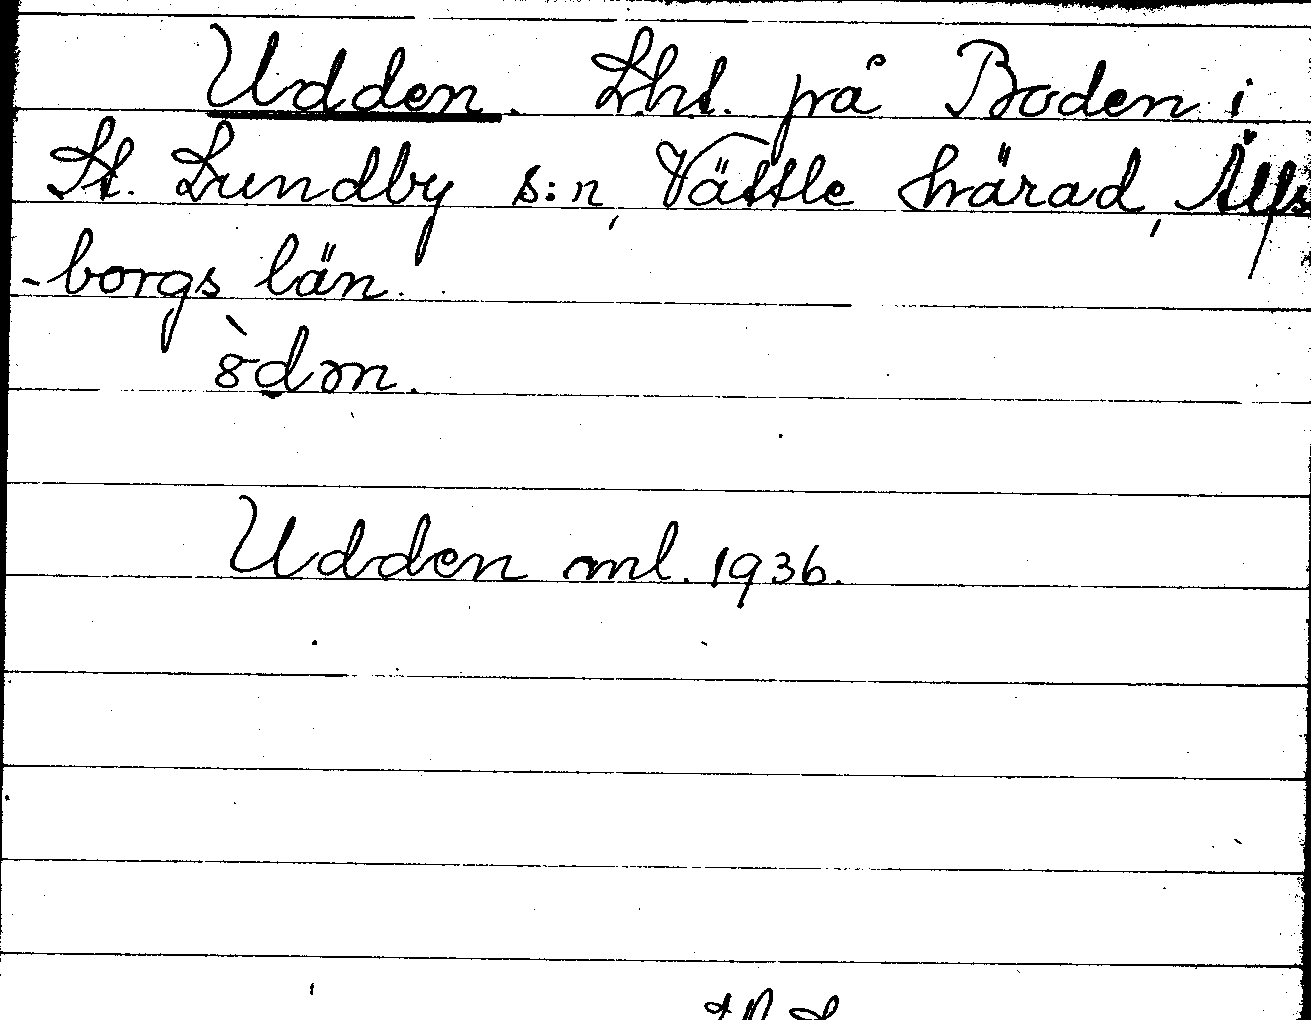 Udden. Lht. på Boden i
St. Lundby s:n, Vättle härad, Älfs
-borgs län.
Udden ml. 1936.